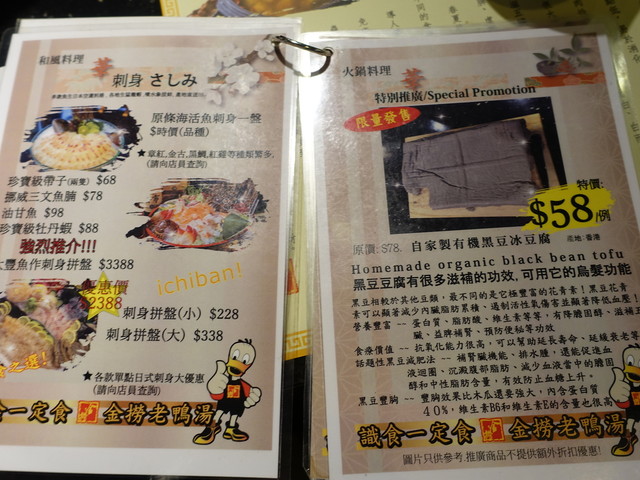 和風料理
刺身 さしみ
原條海活魚刺身一盤
$時價(品種)
★章紅,金古,黑鯛,紅雞等種類繁多,
(請向店員查詢)
珍寶級帶子(兩隻) $68
挪威三文魚腩 $78
油甘魚 $98
珍寶級牡丹蝦 $88
強烈推介!!!
豐魚作刺身拼盤 $3388
優惠價
$2388
ichiban!
刺身拼盤(小) $228
刺身拼盤(大) $338
之選!
★各款單點日式刺身大優惠
(請向店員查詢)
食一定食 金撈老鴨湯
火鍋料理
特別推廣/Special Promotion
限量發售
特價:
$58/例
原價: $78. 自家製有機黑豆冰豆腐 產地:香港
Homemade organic black bean tofu
黑豆豆腐有很多滋補的功效,可用它的烏髮功能
黑豆相較於其他豆類,最不同的是它極豐富的花青素!黑豆花青
素可以顯著減少內臟脂肪累積、遏制活性氧傷害並顯著降低血壓!
營養豐富 -- 蛋白質、脂肪酸、維生素等等,有降膽固醇、滋補正
臟、益脾補腎、預防便秘等功效
食療價值 -- 抗氧化能力很高,可以幫助延長壽命、延緩衰老等
話題性黑豆減肥法 -- 補腎臟機能、排水腫,還能促進血
液迴圈、沉澱腹部脂肪、減少血液當中的膽固
醇和中性脂肪含量,有效防止血糖上升。
黑豆豐胸 -- 豐胸效果比木瓜還要強大,內含蛋白質
40%,維生素B6和維生素E的含量也很高
識食一定食 金撈老鴨湯
圖片只供參考.推廣商品不提供額外折扣優惠!